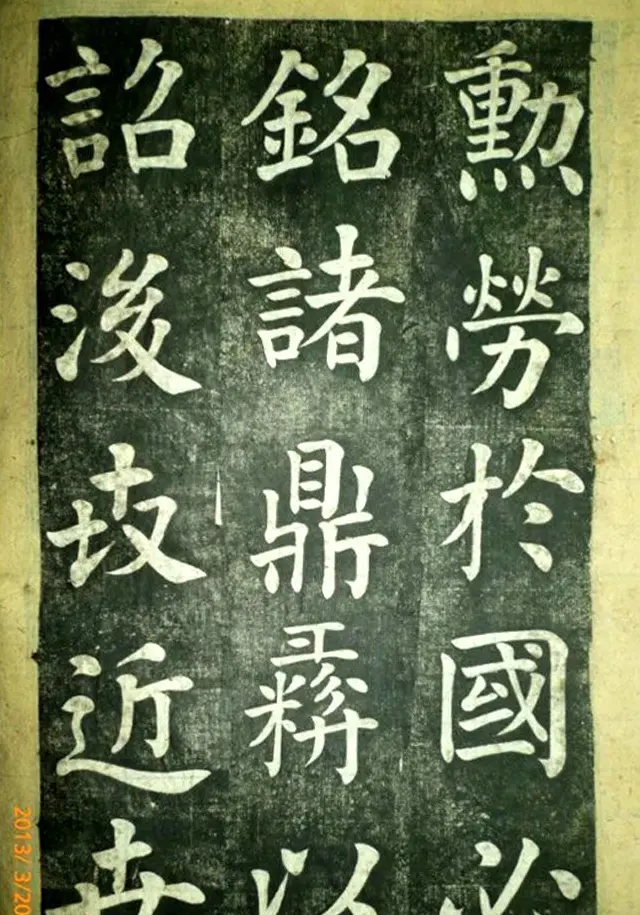 勳勞於國必
銘諸鼎彝以
詔後近世
2013/ 3/20